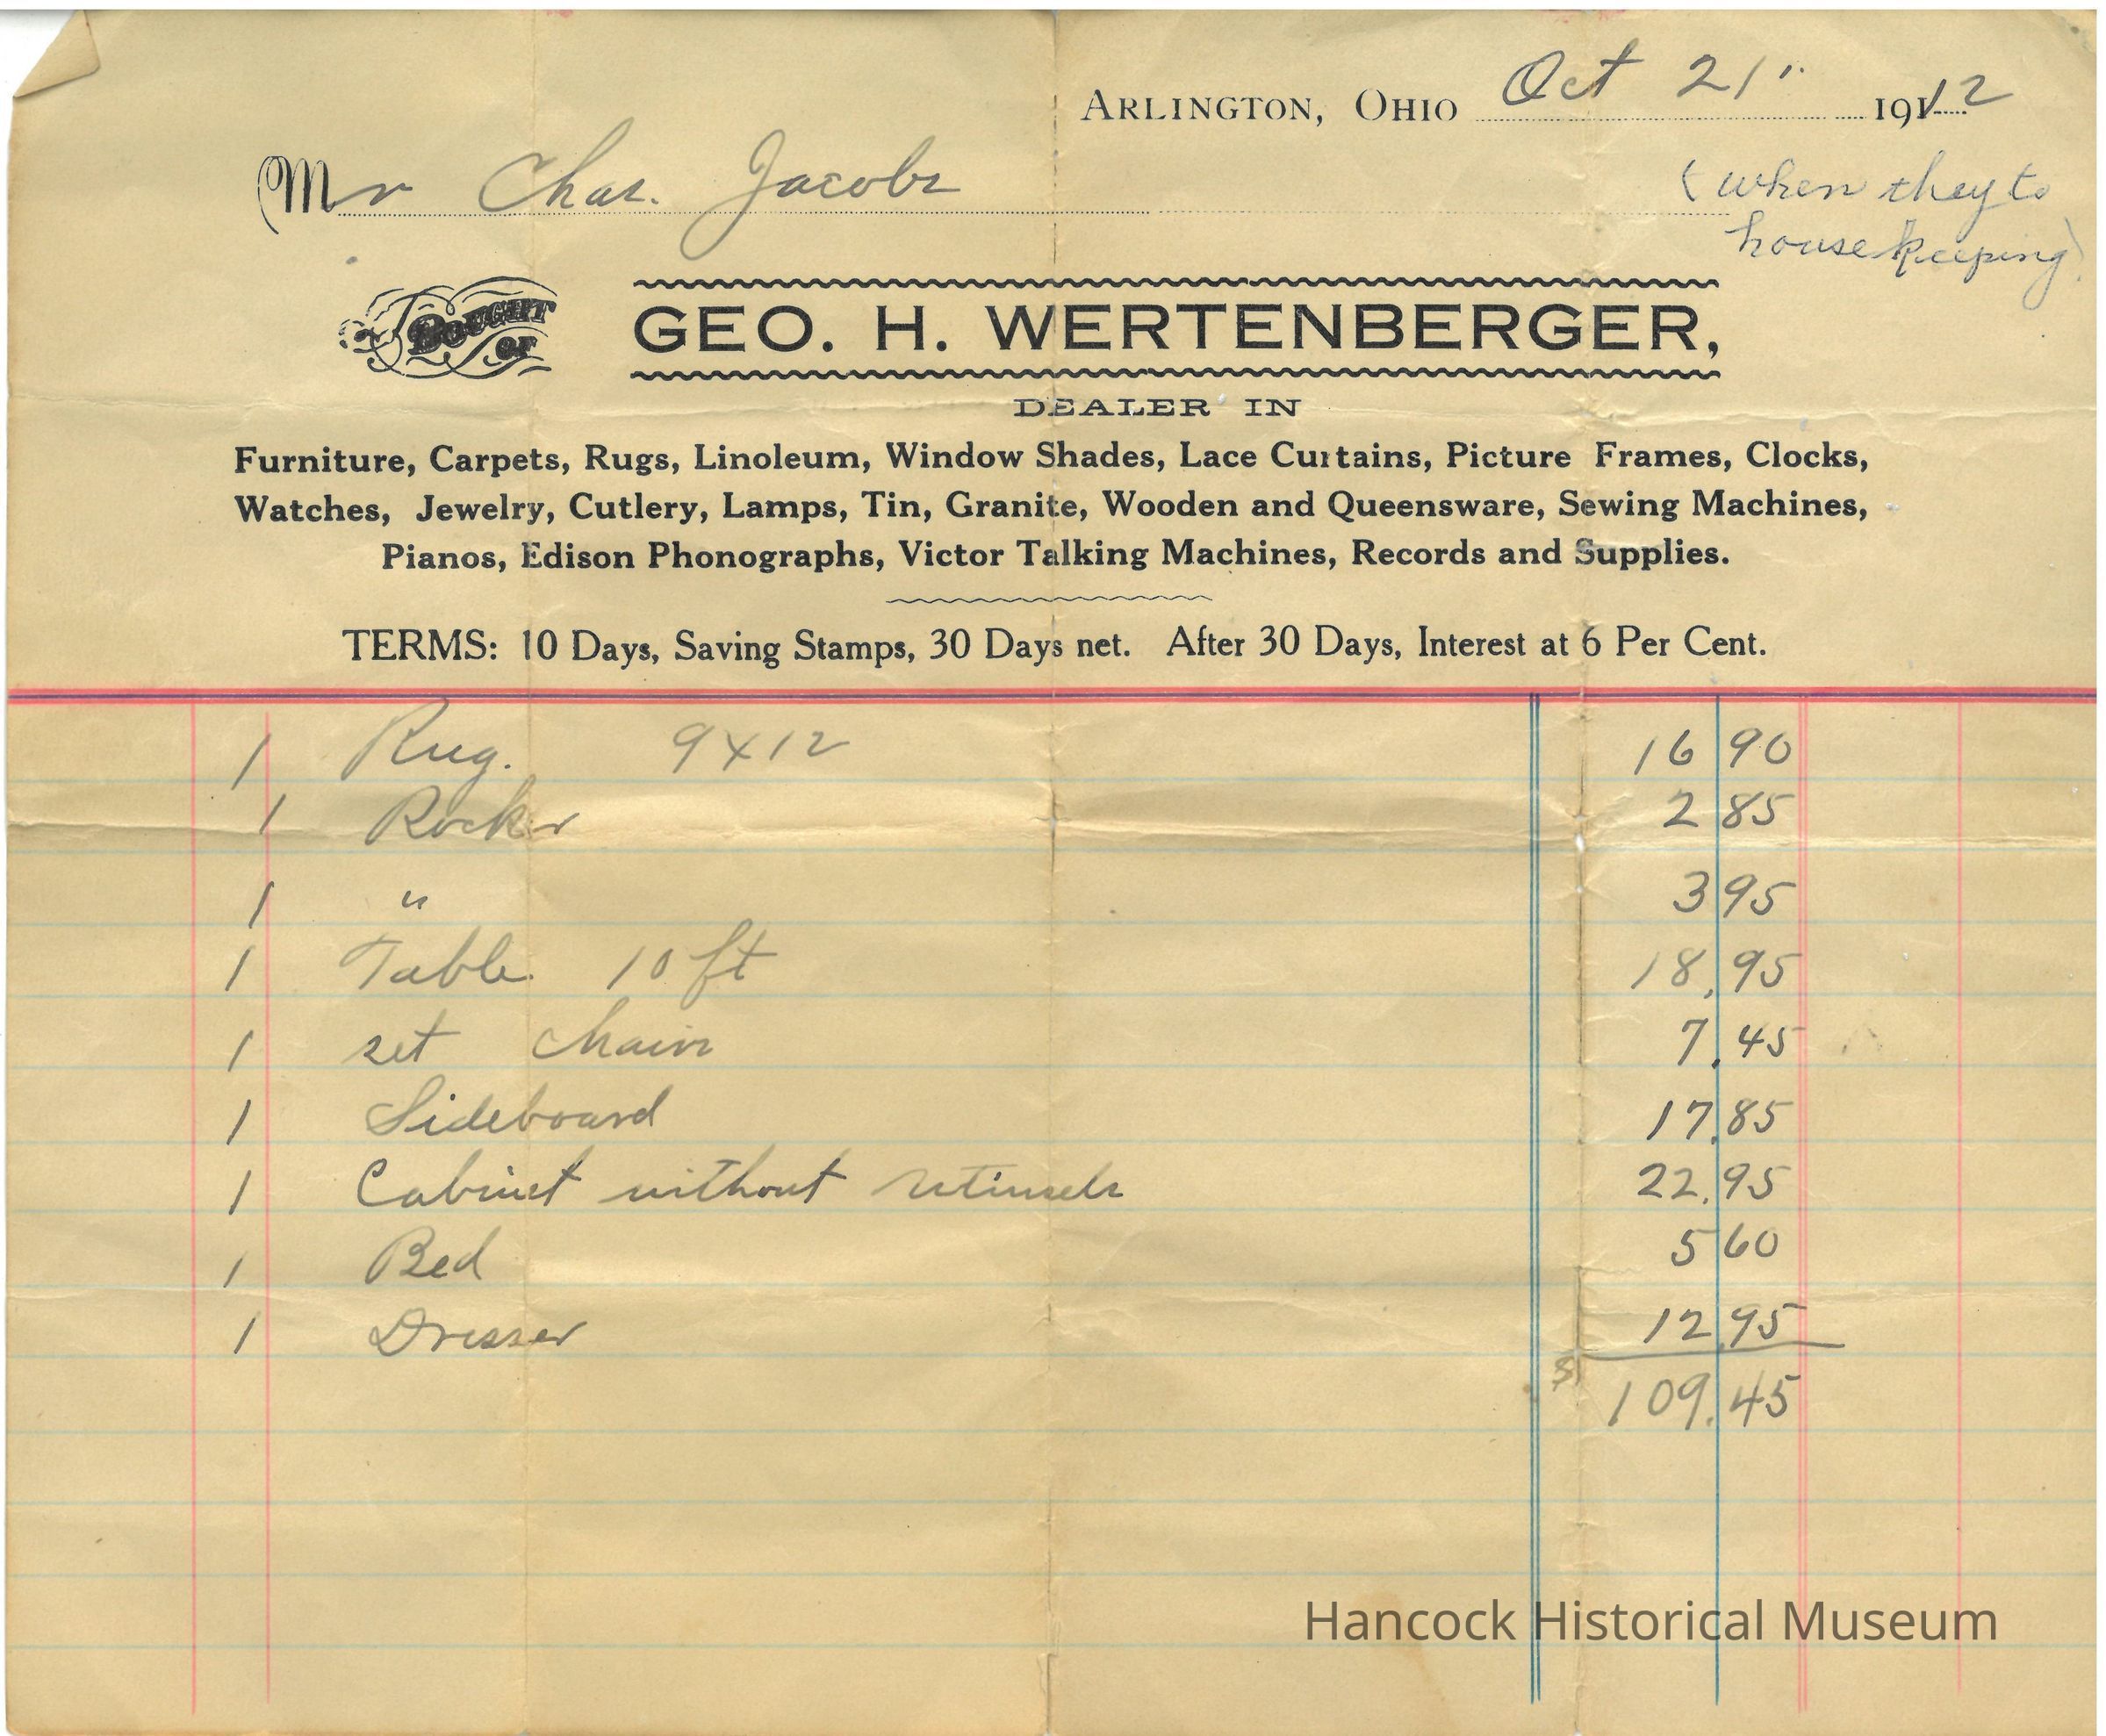 Arlington, Ohio Oct 21" 1912
Mr Chas. Jacobs
(when they to
housekeeping)
Bought of
GEO. H. WERTENBERGER,
DEALER IN
Furniture, Carpets, Rugs, Linoleum, Window Shades, Lace Curtains, Picture Frames, Clocks,
Watches, Jewelry, Cutlery, Lamps, Tin, Granite, Wooden and Queensware, Sewing Machines,
Pianos, Edison Phonographs, Victor Talking Machines, Records and Supplies.
TERMS: 10 Days, Saving Stamps, 30 Days net. After 30 Days, Interest at 6 Per Cent.
1 Rug. 9x12 16 90
1 Rocker 2 85
1 " 3 95
1 Table 10 ft 18.95
1 set Chairs 7.45
1 Sideboard 17.85
1 Cabinet without 22.95
1 Bed 5 60
1 Dresser 12.95
$ 109.45
Hancock Historical Museum